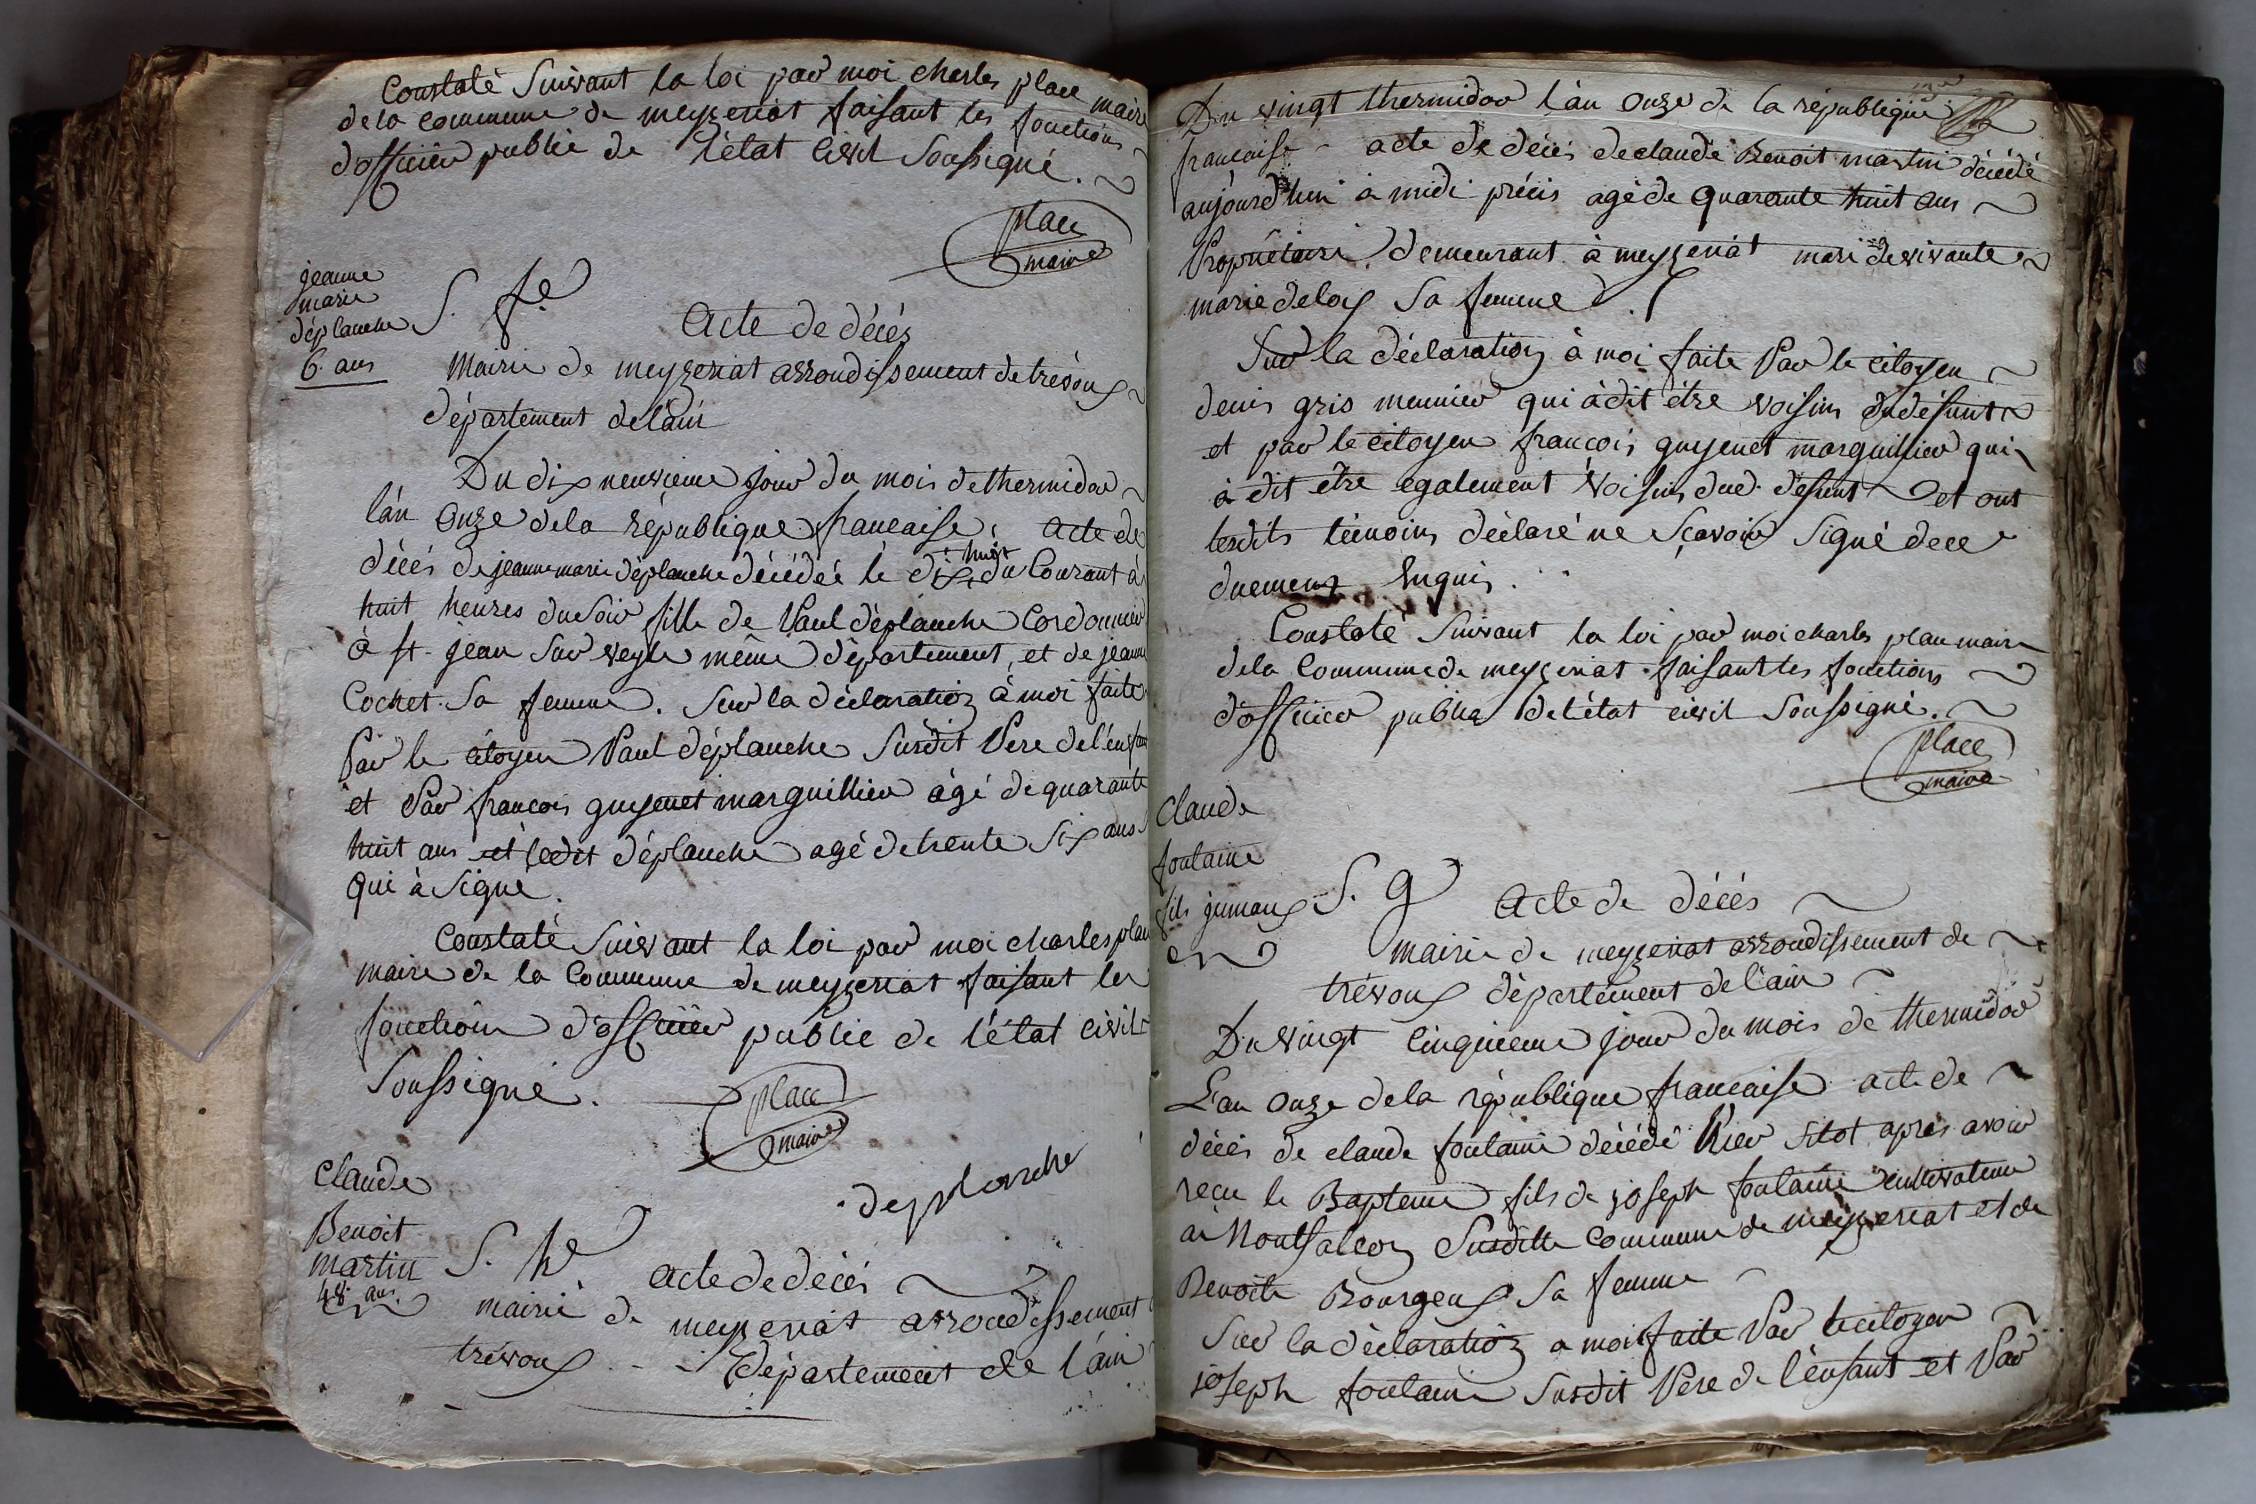 Constaté Suivant la loi par moi charles place maire
de la commune de meyzeriat faisant les fonctions
d'officier public de l'état civil Soussigné.
place
maire
jeanne
marie
déplanche
6. ans
S. fe
Acte de décés
Mairie de meyzeriat arrondissement de trévoux
département de l'ain
Du dix neuvieme jour du mois de thermidor
l'an onze de la république francaise, acte de
décés de jeanne marie déplanche décédée le dix huit du Courant à
huit heures du soir fille de Paul déplanche Cordonnier
à st. jean sur veyle même département, et de jeanne
Cochet Sa femme. Sur la déclaration à moi faite
Par le citoyen Paul déplanche Susdit Pere de l'enfant
et Par francois guyenet marguillier âgé de quarante
huit ans et ledit déplanche agé de trente Six ans
qui à Signé.
Constaté Suivant la loi par moi charles place
maire de la Commune de meyzeriat faisant les
fonctions d'officier public de l'état civil
Soussigné.
place
maire
deplanche
Claude
Benoit
martin
48. ans
S. h
acte de décés
mairie de meyzeriat arrondissement
trévoux département de l'ain
Du vingt thermidor l'an onze de la république
francaise acte de décés de claude Benoit martin décédé
aujourd'hui à midi précis agé de quarante huit ans
Propriétaire demeurant à meyzeriat mari de vivante
marie deloix Sa femme.
Sur la déclaration à moi faite Par le citoyen
denis gris meunier qui à dit être voisin du défunt
et par le citoyen françois guyenet marguillier qui
à dit être egalement Voisin dud. défunt et ont
lesdits témoins déclaré ne Sçavoir Signé de ce
duement Enquis.
Constaté Suivant la loi par moi charles place maire
de la Commune de meyzeriat faisant les fonctions
d'officier public de l'état civil Soussigné.
place
maire
Claude
foulaine
fils jumaux
S. g
Acte de décés
mairie de meyzeriat arrondissement de
trévoux département de l'ain
Du vingt Cinquieme jour du mois de thermidor
L'an onze de la république francaise acte de
décés de claude foulaine décédé hier sitot après avoir
recu le Bapteme fils de joseph foulaine cultivateur
à Montfalcon Susditte commune de meyzeriat et de
Benoite Bourgeux Sa femme
Sur la déclaration a moi faite Par le citoyen
joseph foulaine Susdit Pere de l'enfant et Par